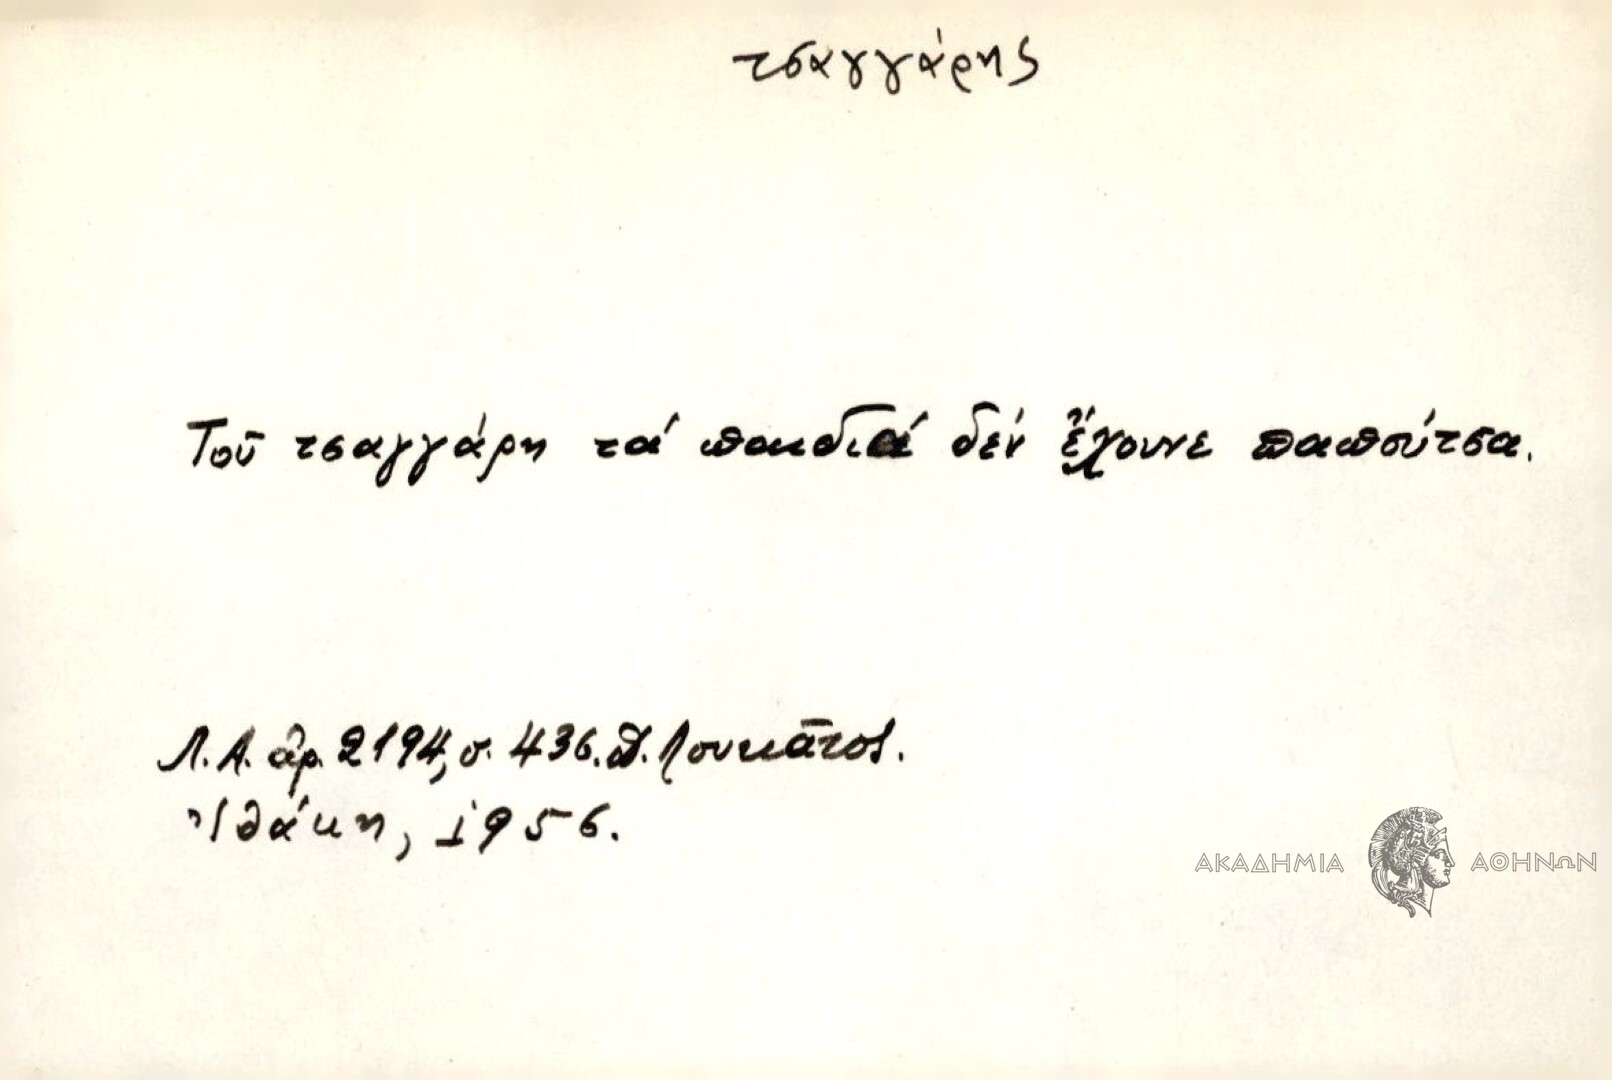 τσαγγάρης
Τοῦ τσαγγάρη τά παιδιά δέν ἔχουνε παπούτσα.
Λ.Α. ἀρ. 2194, σ. 436. Δ. Λουκᾶτος.
Ἰθάκη, 1956.
ΑΚΑΔΗΜΙΑ ΑΘΗΝΩΝ